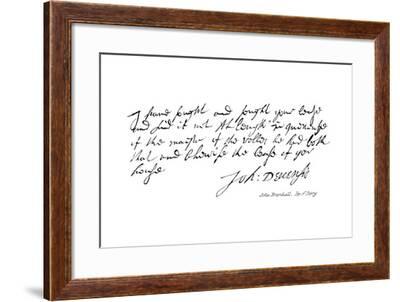 I have sought and sought your lease
and find it not At length I inquired
of the master of the Rolles he had both
that and likewise the lease of your
house
Joh: Derensis
John Bramhall. Bp. of Derry